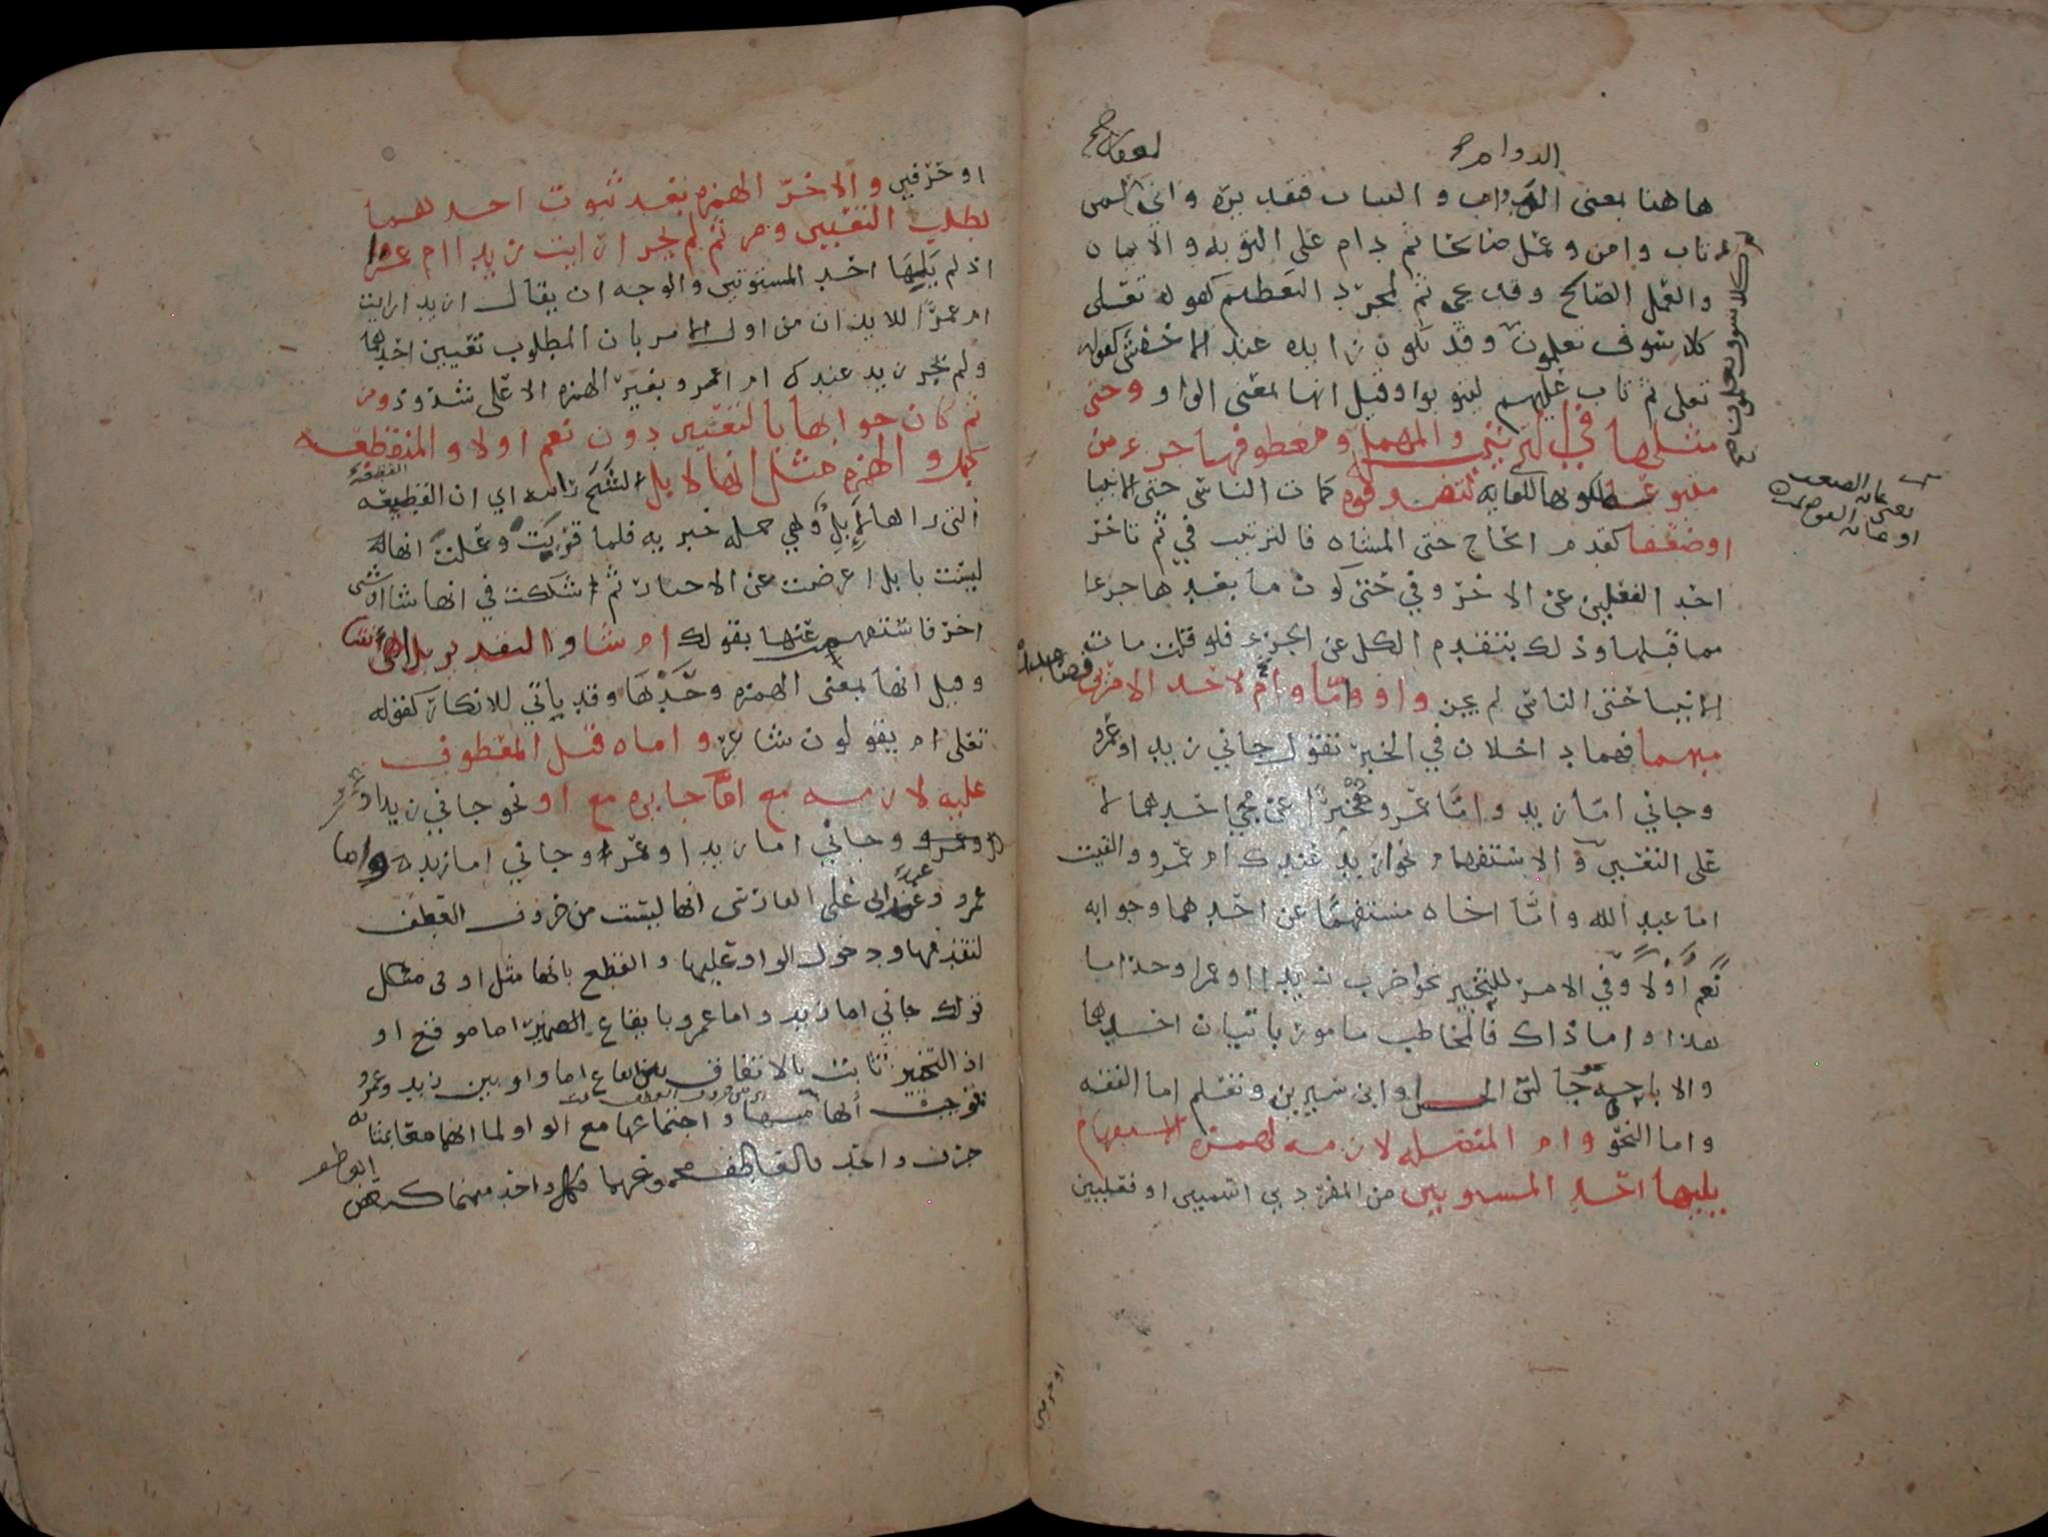 الدوام
هاهنا بمعنى الدوام والثبات فتقديره واني لمن
تاب وامن وعمل صالحا ثم دام على التوبه والايمان
والعمل الصالح وقد يجي ثم لمجرد التعظيم كقوله تعلى
كلا سوف تعلمون وقد تكون زايده عند الاخفش كقوله
تعلى ثم تاب عليهم ليتوبوا وقيل انها بمعنى الواو وحتى
مثلها في الترتيب والمهمل ومعطوفها جزء من
متبوعه لكونها للغايه لتفيد قوه كمات الناس حتى الانبيا
اوضعفا كقدم الحاج حتى المشاه فالترتيب في ثم تاخر
احد الفعلين عن الاخر وفي حتى كون ما بعدها جزءا
مما قبلها وذلك بتقدم الكل عن الجزء فلو قلت مات
الانبيا حتى الناس لم يجز واو واما وام لاحد الامرين
مبهما فهما داخلان في الخبر تقول جاني زيد او عمرو
وجاني اما زيد واما عمرو مخبرا عن مجي احدهما لا
على التعيين والاستفهام نحو ازيد عندك ام عمرو والقيت
اما عبد الله واما اخاه مستفهما عن احدهما وجوابه
نعم أو لا وفي الامر للتخيير نحو اضرب زيدا او عمرا وخذ اما
هذا واما ذاك فالمخاطب مامور باتيان احدهما
والاباحه جالس الحسن او ابن سيرين وتعلم اما الفقه
واما النحو وام المتصله لازمه لهمزه الاستفهام
يليها احد المستويين من المفردين اسمين او فعلين
كلا سوف تعلمون ثم
او حرفين
او حرفين والاخر الهمزه بعد ثبوت احدهما
لطلب التعيين ومن ثم لم يجز ارايت زيدا ام عمرا
اذ لم يليها احد المستويين والوجه ان يقال ازيدا رايت
ام عمرا للايذان من اول الامر بان المطلوب تعيين احدهما
ولم يجز زيد عندك ام عمرو بغير الهمزه الا على شذوذ ومن
ثم كان جوابها بالتعيين دون نعم او لا والمنقطعه
كبل والهمزه مثل انها لابل ام شا اي ان القطيعه
التي راها لإبل وهي جمله خبريه فلما قربت وعلمت انها
ليست بابل اعرضت عن الاخبار ثم شككت في انها شا او شي
اخر فاستفهمت عنها بقولك ام شا والتقدير بل اهي شا
وقيل انها بمعنى الهمزه وحدها وقد ياتي للانكار كقوله
تعلى ام يقولون شاعر واما قبل المعطوف
عليه لازمه مع اما جايزه مع او نحو جاني زيد او عمرو
وجاني اما زيد او عمرو وجاني اما زيد واما
عمرو وعند ابي علي الفارسي انها ليست من حروف العطف
لتقدمها ودخول الواو عليها والقطع بانها مثل او في مثل
قولك جاني اما زيد واما عمرو بايقاع
اذ التخيير ثابت بالاتفاق اما واو بين زيد وعمرو
انها واجتماعها مع الواو لما انهما معا بمثابه
حرف واحد فالعاطف مجموعهما وكل واحد منهما كبعض